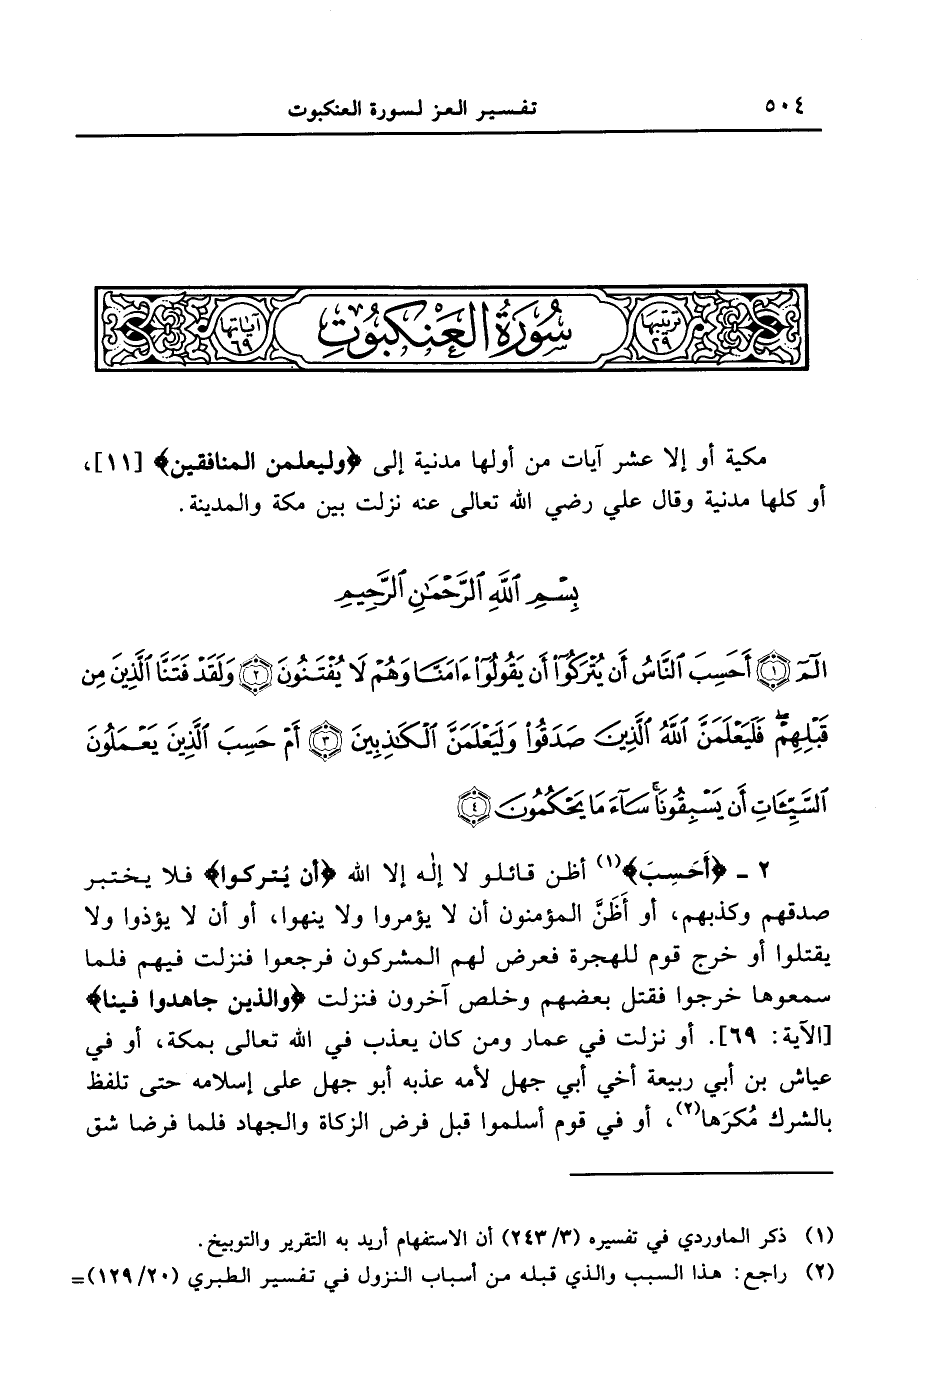 ٥٠٤
تفسير العز لسورة العنكبوت
ترتيبها ٢٩
سُورَةُ العَنْكَبُوتِ
آياتها ٦٩
مكية أو إلا عشر آيات من أولها مدنية إلى ﴿وليعلمن المنافقين﴾ [١١]،
أو كلها مدنية وقال علي رضي الله تعالى عنه نزلت بين مكة والمدينة.
بِسْمِ ٱللَّهِ ٱلرَّحْمَٰنِ ٱلرَّحِيمِ
الٓمٓ ﴿١﴾ أَحَسِبَ ٱلنَّاسُ أَن يُتْرَكُوٓا۟ أَن يَقُولُوٓا۟ ءَامَنَّا وَهُمْ لَا يُفْتَنُونَ ﴿٢﴾ وَلَقَدْ فَتَنَّا ٱلَّذِينَ مِن
قَبْلِهِمْ ۖ فَلَيَعْلَمَنَّ ٱللَّهُ ٱلَّذِينَ صَدَقُوا۟ وَلَيَعْلَمَنَّ ٱلْكَٰذِبِينَ ﴿٣﴾ أَمْ حَسِبَ ٱلَّذِينَ يَعْمَلُونَ
ٱلسَّيِّـَٔاتِ أَن يَسْبِقُونَا ۚ سَآءَ مَا يَحْكُمُونَ ﴿٤﴾
٢ ـ ﴿أَحَسِبَ﴾(١) أظن قائلو لا إلٰه إلا الله ﴿أن يُتركوا﴾ فلا يختبر
صدقهم وكذبهم، أو أَظَنَّ المؤمنون أن لا يؤمروا ولا ينهوا، أو أن لا يؤذوا ولا
يقتلوا أو خرج قوم للهجرة فعرض لهم المشركون فرجعوا فنزلت فيهم فلما
سمعوها خرجوا فقتل بعضهم وخلص آخرون فنزلت ﴿والذين جاهدوا فينا﴾
[الآية: ٦٩]. أو نزلت في عمار ومن كان يعذب في الله تعالى بمكة، أو في
عياش بن أبي ربيعة أخي أبي جهل لأمه عذبه أبو جهل على إسلامه حتى تلفظ
بالشرك مُكرَها(٢)، أو في قوم أسلموا قبل فرض الزكاة والجهاد فلما فرضا شق
(١) ذكر الماوردي في تفسيره (٢٤٣/٣) أن الاستفهام أريد به التقرير والتوبيخ.
(٢) راجع: هذا السبب والذي قبله من أسباب النزول في تفسير الطبري (١٢٩/٢٠)=